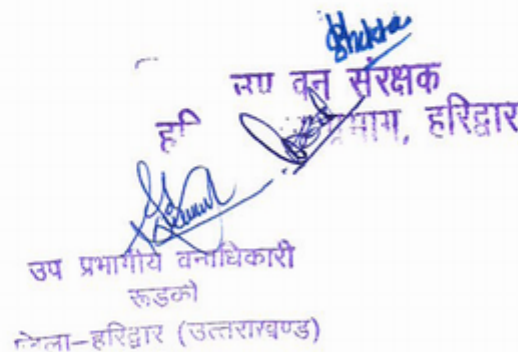 उप वन संरक्षक
प्रभाग, हरिद्वार
उप प्रभागीय वनाधिकारी
रूड़की
जिला-हरिद्वार (उत्तराखण्ड)